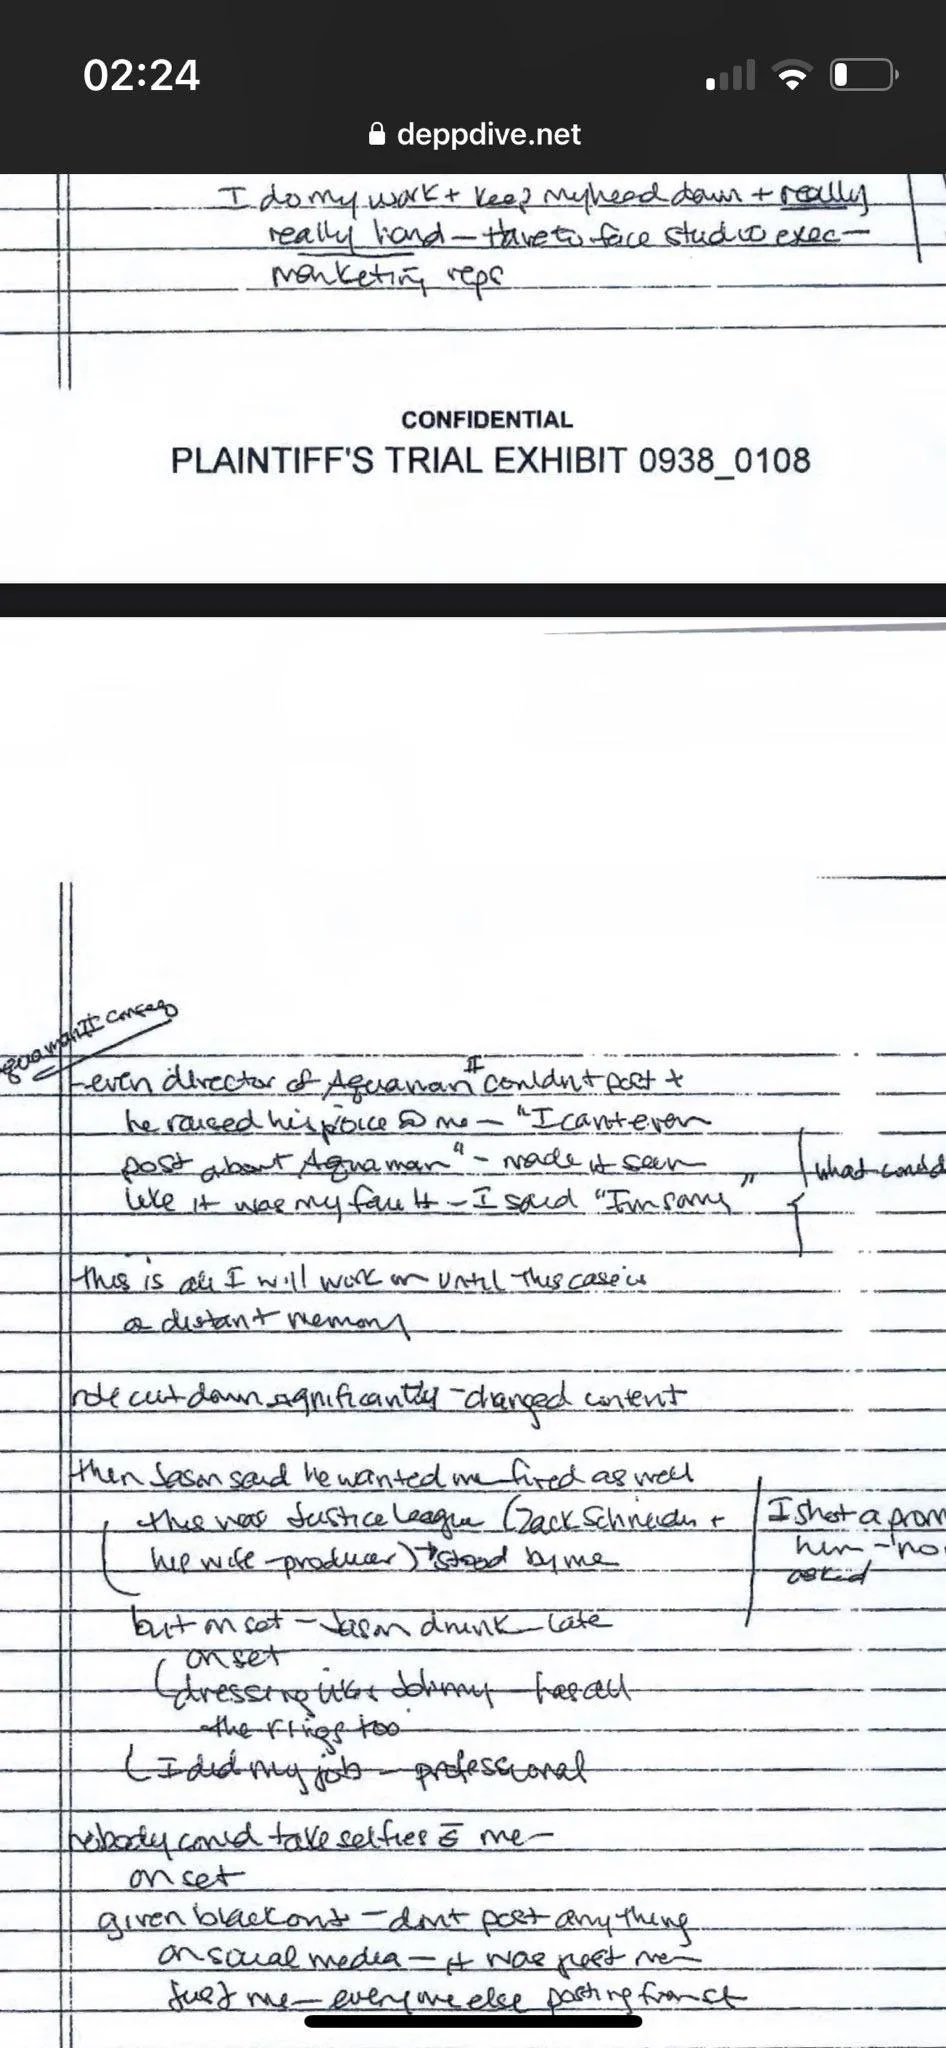 02:24
deppdive.net
I do my work + keep my head down + really
really hard — have to face studio exec —
marketing reps
CONFIDENTIAL
PLAINTIFF'S TRIAL EXHIBIT 0938_0108
quaman II conseq
- even director of Aquaman II couldnt post +
he raised his voice @ me — "I cant even
post about Aquaman" - made it seem
like it was my fault - I said "Im sorry"
what could
this is all I will work on until this case is
a distant memory
role cut down significantly - changed content
then Jason said he wanted me fired as well
this was Justice League (Zack Schneider +
his wife - producer) → stood by me
I shot a prom
him - no
asked
but on set - Jason drunk - late
on set
(dressing like Johnny - has all
the rings too
(I did my job - professional
nobody could take selfies c̄ me -
on set
given blackout - dont post anything
on social media - it was just me
just me - everyone else posting from set